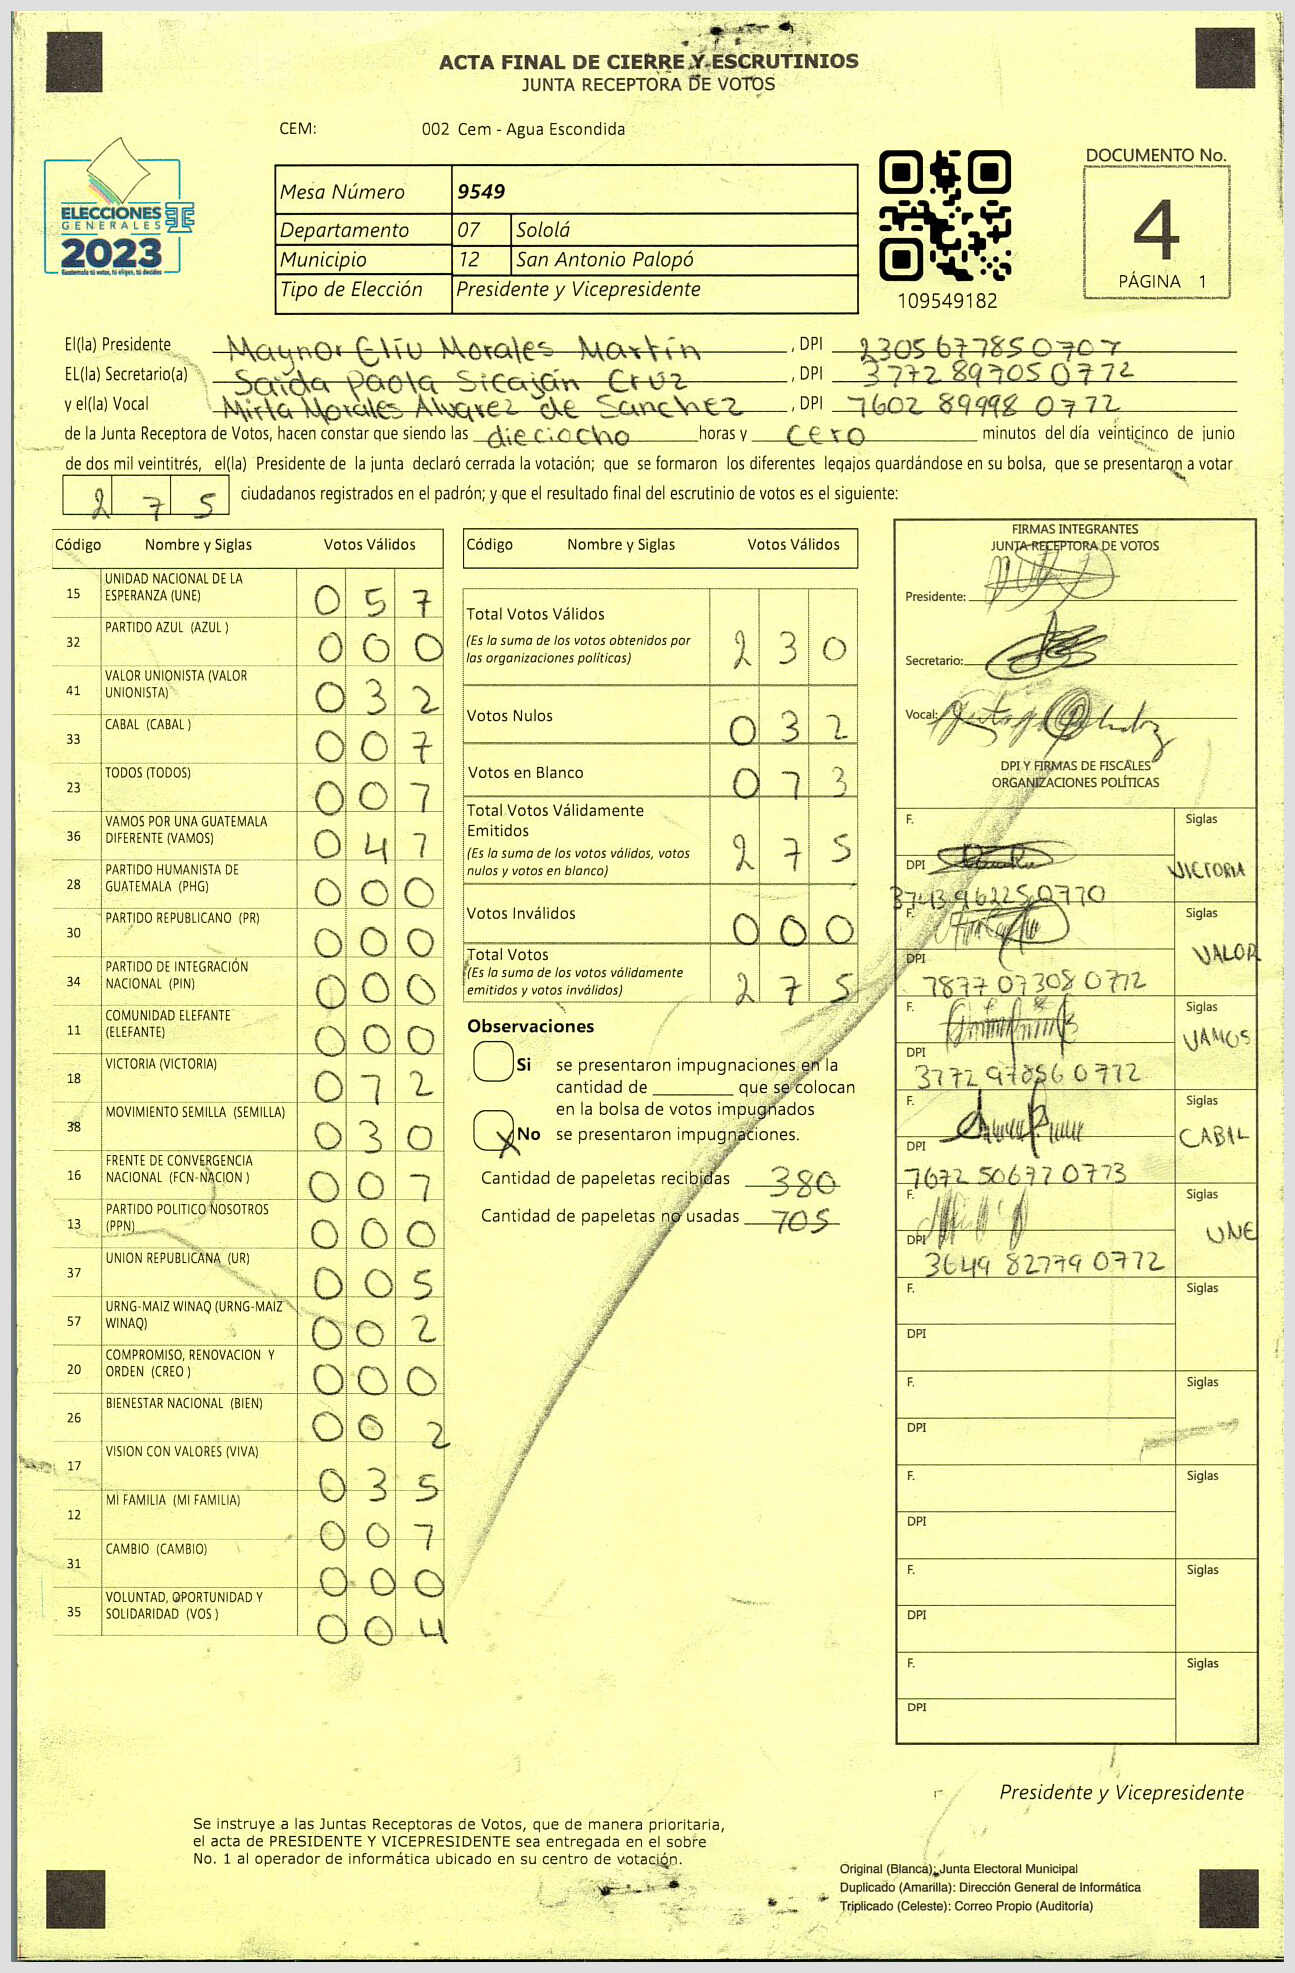 ACTA FINAL DE CIERRE Y ESCRUTINIOS
JUNTA RECEPTORA DE VOTOS
CEM: 002 Cem - Agua Escondida
ELECCIONES
GENERALES
2023
Guatemala tú votas, tú eliges, tú decides
Mesa Número 9549
Departamento 07 Sololá
Municipio 12 San Antonio Palopó
Tipo de Elección Presidente y Vicepresidente
109549182
DOCUMENTO No.
4
PÁGINA 1
El(la) Presidente Maynor Eliu Morales Martín , DPI 2305677850707
EL(la) Secretario(a) Saida Paola Sicaján Cruz , DPI 3772897050772
y el(la) Vocal Mirta Morales Alvarez de Sanchez , DPI 7602 89998 0772
de la Junta Receptora de Votos, hacen constar que siendo las dieciocho horas y cero minutos del día veinticinco de junio
de dos mil veintitrés, el(la) Presidente de la junta declaró cerrada la votación; que se formaron los diferentes legajos guardándose en su bolsa, que se presentaron a votar
2 7 5 ciudadanos registrados en el padrón; y que el resultado final del escrutinio de votos es el siguiente:
Código Nombre y Siglas Votos Válidos
15 UNIDAD NACIONAL DE LA ESPERANZA (UNE) 0 5 7
32 PARTIDO AZUL (AZUL ) 0 0 0
41 VALOR UNIONISTA (VALOR UNIONISTA) 0 3 2
33 CABAL (CABAL ) 0 0 7
23 TODOS (TODOS) 0 0 7
36 VAMOS POR UNA GUATEMALA DIFERENTE (VAMOS) 0 4 7
28 PARTIDO HUMANISTA DE GUATEMALA (PHG) 0 0 0
30 PARTIDO REPUBLICANO (PR) 0 0 0
34 PARTIDO DE INTEGRACIÓN NACIONAL (PIN) 0 0 0
11 COMUNIDAD ELEFANTE (ELEFANTE) 0 0 0
18 VICTORIA (VICTORIA) 0 7 2
38 MOVIMIENTO SEMILLA (SEMILLA) 0 3 0
16 FRENTE DE CONVERGENCIA NACIONAL (FCN-NACION ) 0 0 7
13 PARTIDO POLITICO NOSOTROS (PPN) 0 0 0
37 UNION REPUBLICANA (UR) 0 0 5
57 URNG-MAIZ WINAQ (URNG-MAIZ WINAQ) 0 0 2
20 COMPROMISO, RENOVACION Y ORDEN (CREO ) 0 0 0
26 BIENESTAR NACIONAL (BIEN) 0 0 2
17 VISION CON VALORES (VIVA) 0 3 5
12 MI FAMILIA (MI FAMILIA) 0 0 7
31 CAMBIO (CAMBIO) 0 0 0
35 VOLUNTAD, OPORTUNIDAD Y SOLIDARIDAD (VOS ) 0 0 4
Código Nombre y Siglas Votos Válidos
Total Votos Válidos 2 3 0
(Es la suma de los votos obtenidos por
las organizaciones políticas)
Votos Nulos 0 3 2
Votos en Blanco 0 7 3
Total Votos Válidamente
Emitidos 2 7 5
(Es la suma de los votos válidos, votos
nulos y votos en blanco)
Votos Inválidos 0 0 0
Total Votos 2 7 5
(Es la suma de los votos válidamente
emitidos y votos inválidos)
Observaciones
Si se presentaron impugnaciones en la
cantidad de ________ que se colocan
en la bolsa de votos impugnados
X No se presentaron impugnaciones.
Cantidad de papeletas recibidas 380
Cantidad de papeletas no usadas 705
FIRMAS INTEGRANTES
JUNTA RECEPTORA DE VOTOS
Presidente:
Secretario:
Vocal:
DPI Y FIRMAS DE FISCALES
ORGANIZACIONES POLÍTICAS
F. Siglas
DPI VICTORIA
3743 96225 0770
F. Siglas
DPI VALOR
7877 07308 0772
F. Siglas
DPI VAMOS
3772 97856 0772
F. Siglas
DPI CABAL
7672 50677 0773
F. Siglas
DPI UNE
3649 82779 0772
F. Siglas
DPI
F. Siglas
DPI
F. Siglas
DPI
F. Siglas
DPI
F. Siglas
DPI
Presidente y Vicepresidente
Se instruye a las Juntas Receptoras de Votos, que de manera prioritaria,
el acta de PRESIDENTE Y VICEPRESIDENTE sea entregada en el sobre
No. 1 al operador de informática ubicado en su centro de votación.
Original (Blanca): Junta Electoral Municipal
Duplicado (Amarilla): Dirección General de Informática
Triplicado (Celeste): Correo Propio (Auditoría)